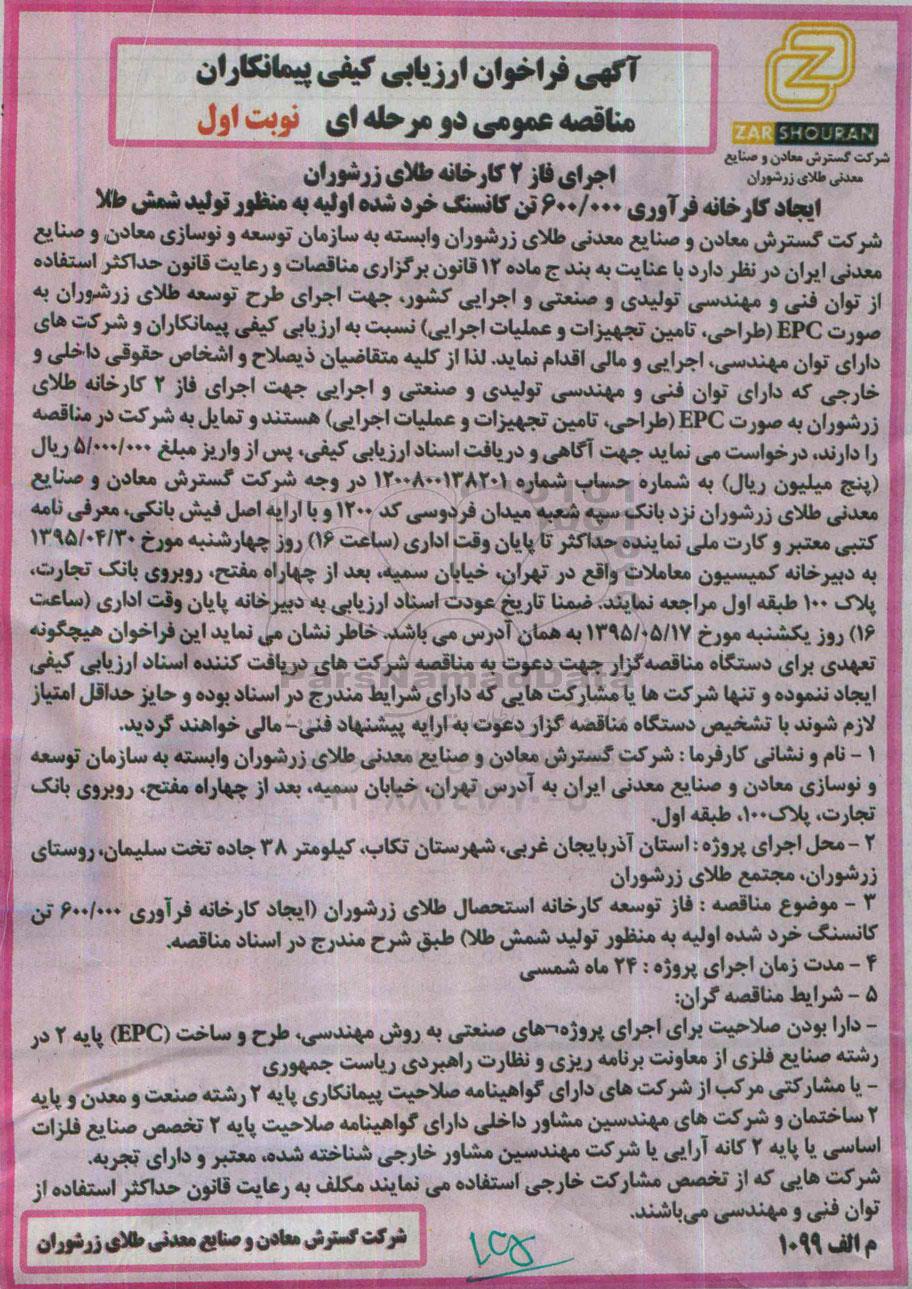 آگهی فراخوان ارزیابی کیفی پیمانکاران
مناقصه عمومی دو مرحله ای نوبت اول
ZARSHOURAN
شرکت گسترش معادن و صنایع
معدنی طلای زرشوران
اجرای فاز ۲ کارخانه طلای زرشوران
ایجاد کارخانه فرآوری ۶۰۰/۰۰۰ تن کانسنگ خرد شده اولیه به منظور تولید شمش طلا
شرکت گسترش معادن و صنایع معدنی طلای زرشوران وابسته به سازمان توسعه و نوسازی معادن و صنایع
معدنی ایران در نظر دارد با عنایت به بند ج ماده ۱۲ قانون برگزاری مناقصات و رعایت قانون حداکثر استفاده
از توان فنی و مهندسی تولیدی و صنعتی و اجرایی کشور، جهت اجرای طرح توسعه طلای زرشوران به
صورت EPC (طراحی، تامین تجهیزات و عملیات اجرایی) نسبت به ارزیابی کیفی پیمانکاران و شرکت های
دارای توان مهندسی، اجرایی و مالی اقدام نماید. لذا از کلیه متقاضیان ذیصلاح و اشخاص حقوقی داخلی و
خارجی که دارای توان فنی و مهندسی تولیدی و صنعتی و اجرایی جهت اجرای فاز ۲ کارخانه طلای
زرشوران به صورت EPC (طراحی، تامین تجهیزات و عملیات اجرایی) هستند و تمایل به شرکت در مناقصه
را دارند، درخواست می نماید جهت آگاهی و دریافت اسناد ارزیابی کیفی، پس از واریز مبلغ ۵/۰۰۰/۰۰۰ ریال
(پنج میلیون ریال) به شماره حساب شماره ۱۲۰۰۸۰۰۱۳۸۲۰۱ در وجه شرکت گسترش معادن و صنایع
معدنی طلای زرشوران نزد بانک سپه شعبه میدان فردوسی کد ۱۲۰۰ و با ارایه اصل فیش بانکی، معرفی نامه
کتبی معتبر و کارت ملی نماینده حداکثر تا پایان وقت اداری (ساعت ۱۶) روز چهارشنبه مورخ ۱۳۹۵/۰۴/۳۰
به دبیرخانه کمیسیون معاملات واقع در تهران، خیابان سمیه، بعد از چهاراه مفتح، روبروی بانک تجارت،
پلاک ۱۰۰ طبقه اول مراجعه نمایند. ضمنا تاریخ عودت اسناد ارزیابی به دبیرخانه پایان وقت اداری (ساعت
۱۶) روز یکشنبه مورخ ۱۳۹۵/۰۵/۱۷ به همان آدرس می باشد. خاطر نشان می نماید این فراخوان هیچگونه
تعهدی برای دستگاه مناقصه‌گزار جهت دعوت به مناقصه شرکت های دریافت کننده اسناد ارزیابی کیفی
ParsNamadData
ایجاد ننموده و تنها شرکت ها یا مشارکت هایی که دارای شرایط مندرج در اسناد بوده و حایز حداقل امتیاز
لازم شوند با تشخیص دستگاه مناقصه گزار دعوت به ارایه پیشنهاد فنی- مالی خواهند گردید.
۱ - نام و نشانی کارفرما : شرکت گسترش معادن و صنایع معدنی طلای زرشوران وابسته به سازمان توسعه
و نوسازی معادن و صنایع معدنی ایران به آدرس تهران، خیابان سمیه، بعد از چهاراه مفتح، روبروی بانک
تجارت، پلاک۱۰۰، طبقه اول.
۲ - محل اجرای پروژه : استان آذربایجان غربی، شهرستان تکاب، کیلومتر ۳۸ جاده تخت سلیمان، روستای
زرشوران، مجتمع طلای زرشوران
۳ - موضوع مناقصه : فاز توسعه کارخانه استحصال طلای زرشوران (ایجاد کارخانه فرآوری ۶۰۰/۰۰۰ تن
کانسنگ خرد شده اولیه به منظور تولید شمش طلا) طبق شرح مندرج در اسناد مناقصه.
۴ - مدت زمان اجرای پروژه : ۲۴ ماه شمسی
۵ - شرایط مناقصه گران:
- دارا بودن صلاحیت برای اجرای پروژه¬های صنعتی به روش مهندسی، طرح و ساخت (EPC) پایه ۲ در
رشته صنایع فلزی از معاونت برنامه ریزی و نظارت راهبردی ریاست جمهوری
- یا مشارکتی مرکب از شرکت های دارای گواهینامه صلاحیت پیمانکاری پایه ۲ رشته صنعت و معدن و پایه
۲ ساختمان و شرکت های مهندسین مشاور داخلی دارای گواهینامه صلاحیت پایه ۲ تخصص صنایع فلزات
اساسی یا پایه ۲ کانه آرایی یا شرکت مهندسین مشاور خارجی شناخته شده، معتبر و دارای تجربه.
شرکت هایی که از تخصص مشارکت خارجی استفاده می نمایند مکلف به رعایت قانون حداکثر استفاده از
توان فنی و مهندسی می‌باشند.
م الف ۱۰۹۹
شرکت گسترش معادن و صنایع معدنی طلای زرشوران